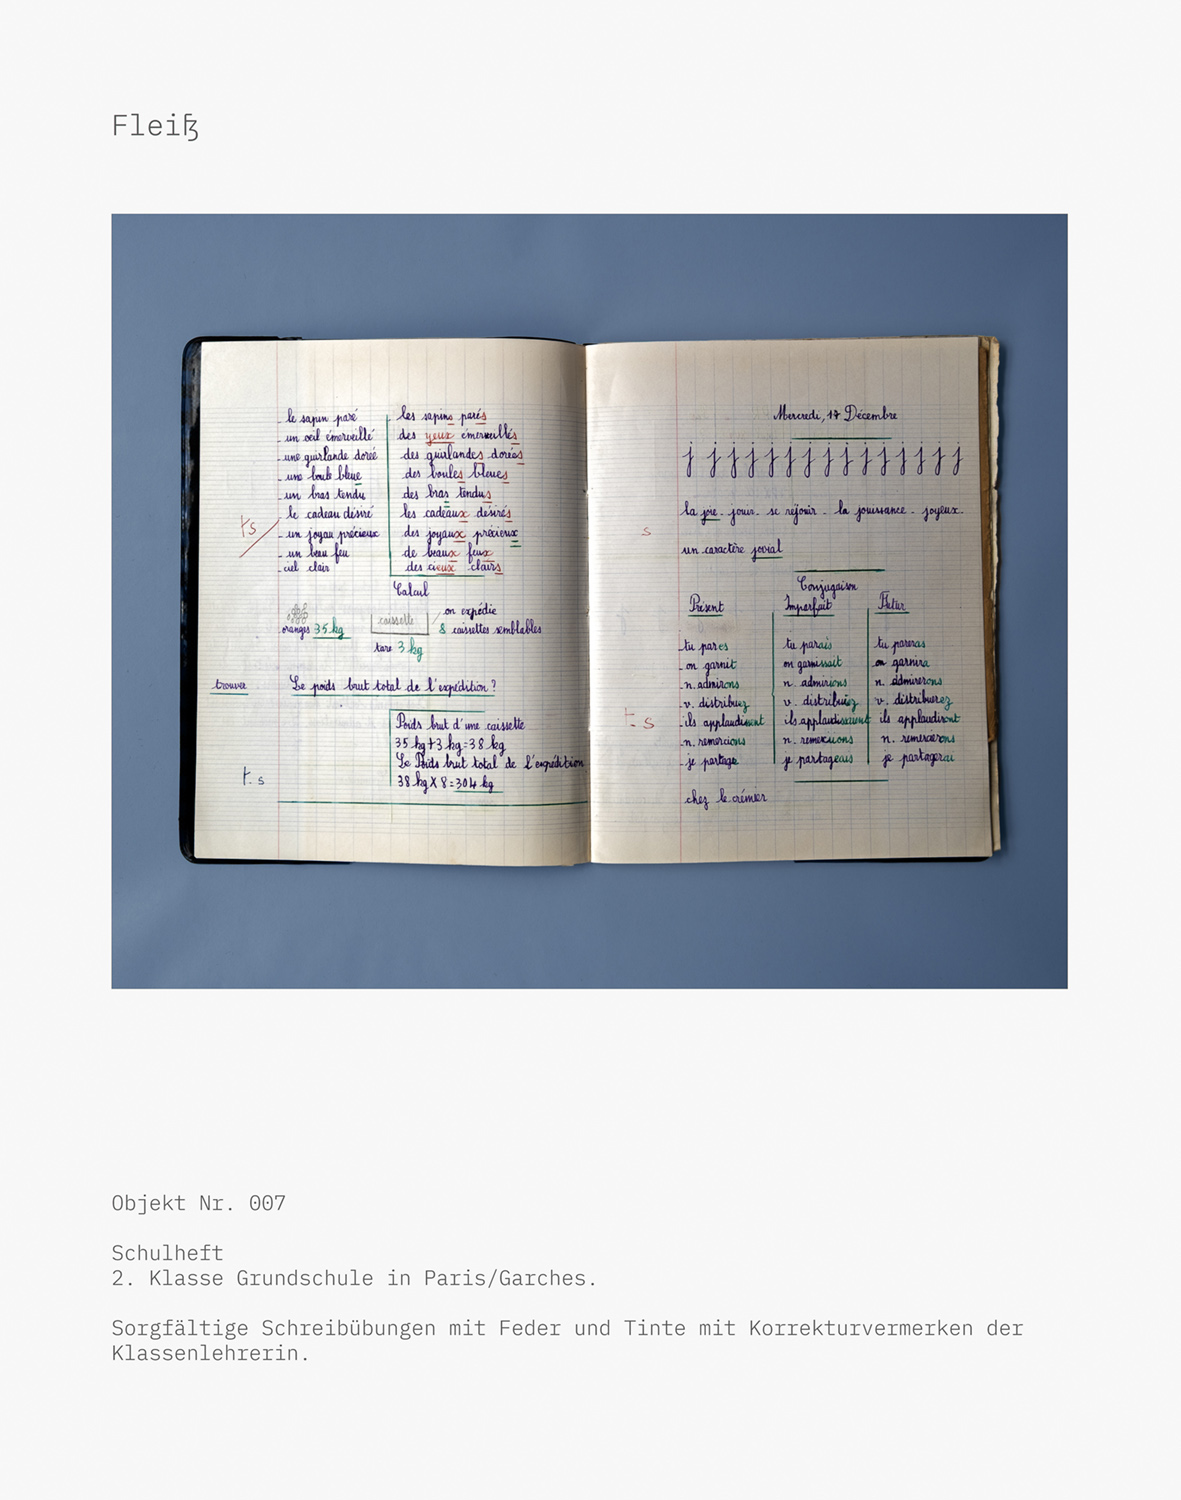 Fleiß
le sapin paré les sapins parés
un œil émerveillé des yeux émerveillés
une guirlande dorée des guirlandes dorées
une boule bleue des boules bleues
un bras tendu des bras tendus
le cadeau désiré les cadeaux désirés
ts
un joyau précieux des joyaux précieux
un beau feu de beaux feux
ciel clair des cieux clairs
Calcul
oranges 35 kg
caissette
tare 3 kg
on expédie
8 caissettes semblables
trouver Le poids brut total de l'expédition ?
Poids brut d'une caissette
35 kg + 3 kg = 38 kg
Le Poids brut total de l'expédition
38 kg X 8 = 304 kg
t.s
Mercredi, 17 Décembre
j j j j j j j j j j j j j j j
la joie - jouir - se réjouir - la jouissance - joyeux -
s
un caractère jovial
Conjugaison
Présent Imparfait Futur
tu pares tu parais tu pareras
on garnit on garnissait on garnira
n. admirons n. admirions n. admirerons
v. distribuez v. distribuiez v. distribuerez
t.s
ils applaudissent ils applaudissaient ils applaudiront
n. remercions n. remerciions n. remercierons
je partage je partageais je partagerai
chez le crémier
Objekt Nr. 007
Schulheft
2. Klasse Grundschule in Paris/Garches.
Sorgfältige Schreibübungen mit Feder und Tinte mit Korrekturvermerken der
Klassenlehrerin.